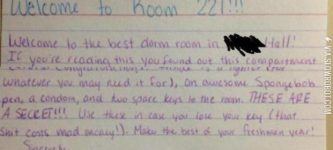 Welcome to Room 221!!!
Welcome to the best dorm room in Hall!
If you're reading this you found out this compartment
whatever you may need it for), an awesome Spongebob
pen, a condom, and two spare keys to the room. THESE ARE
A SECRET!!! Use these in case you lose your key (that
shit costs mad money!). Make the best of your freshmen year!